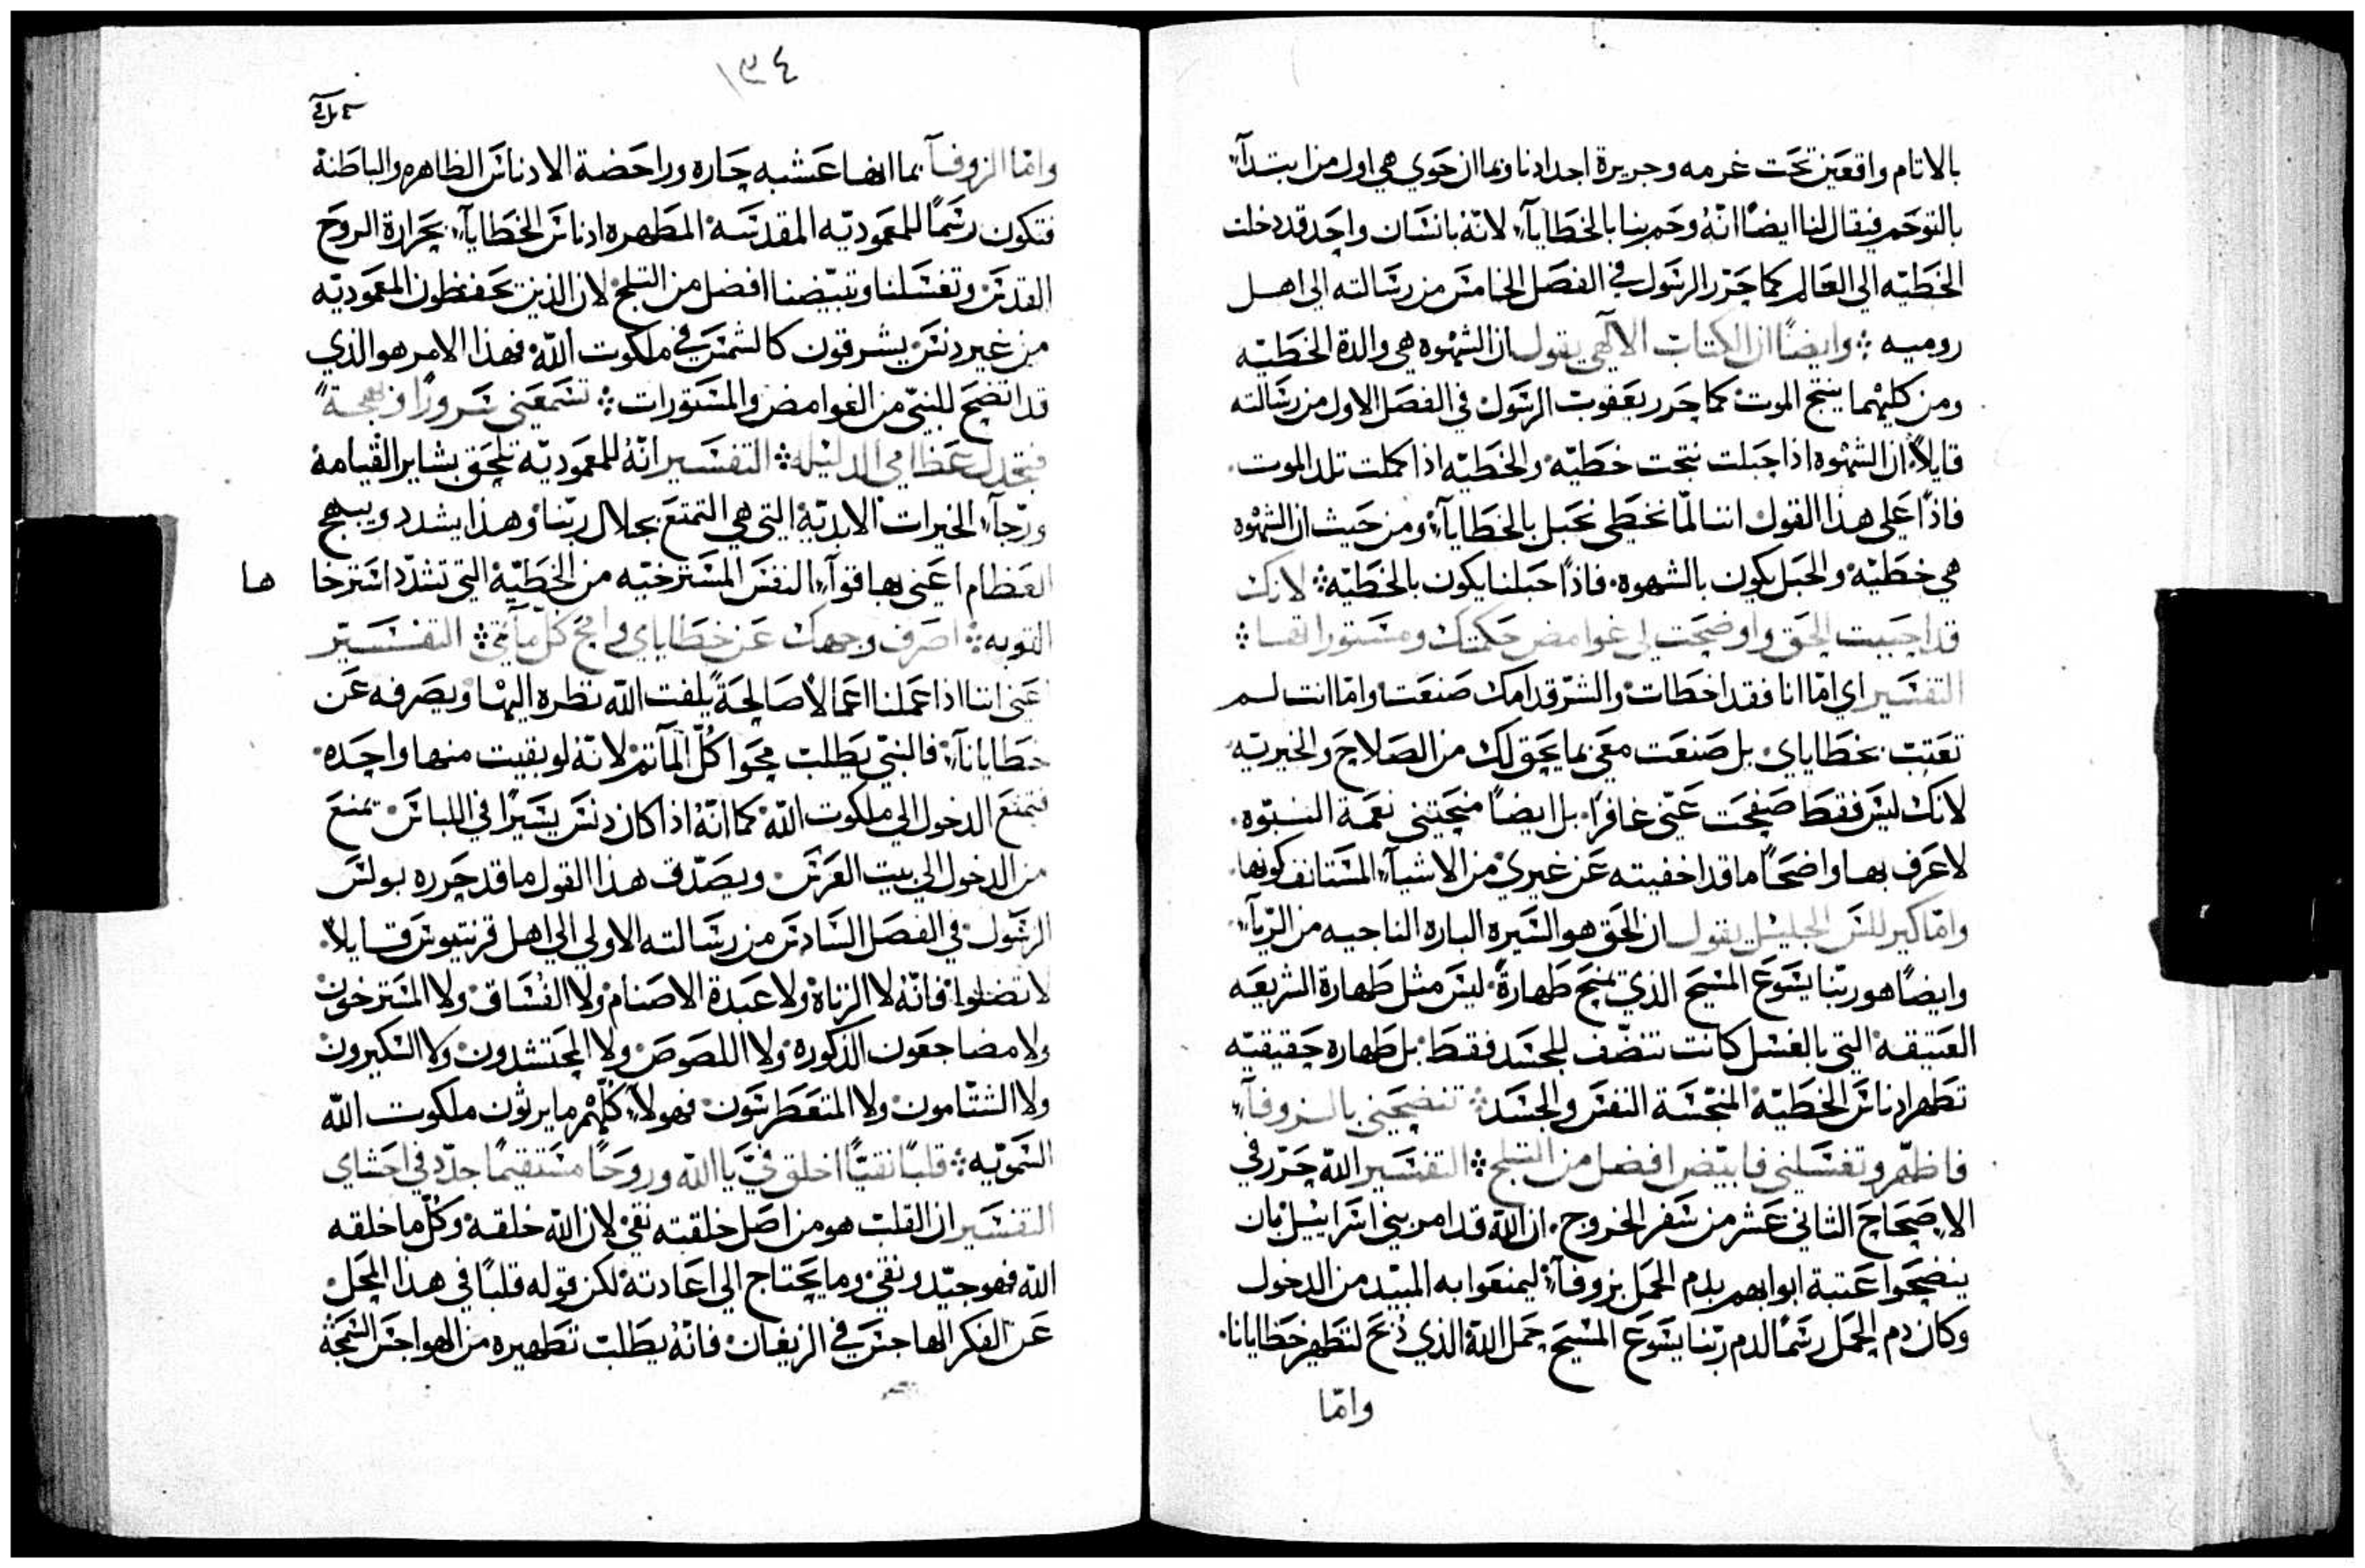 بالاثام واقعين تحت غرمه وجريرة اجدادنا وبما ان حوي هي اول من ابتدآء
بالتوحم فيقال لنا ايضًا انّهُ وحم بنا بالخطايآء لانّهُ بانسان واحد قد دخلت
الخطيّه الى العالم كما حرّر الرسول في الفصل الخامس من رسالته الى اهل
روميه ܀ وايضًا ان الكتاب الالهي يقول ان الشهوه هي والدة الخطيّه
ومن كليهما ينتج الموت كما حرر يعقوب الرسول في الفصل الاول من رسالته
قايلاً ان الشهوه اذا حبلت نتجت خطيّه والخطيّه اذا كملت تلد الموت
فاذًا على هذا القول اننا لمّا نخطى نحبل بالخطايآء ومن حيث ان الشهوه
هي خطيّه والحبل يكون بالشهوه فاذًا حبلنا يكون بالخطيّه ܀ لانك
قد احببت الحق واوضحت لي غوامض حكمتك ومستوراتها ܀
التفسير اي امّا انا فقد اخطات والشرّ قدامك صنعت وامّا انت لم
تعتب بخطاياي بل صنعت معي بما يحق لك من الصلاح والخيريّه
لانك ليس فقط صفحت عنّي غافرًا بل ايضًا منحتني نعمة النبوّه
لاعرف بها واضحًا ما قد اخفيته عن غيري من الاشيآء المستانف كونها
وامّا كيرللس الجليل يقول ان الحق هو السيره الباره الناجيه من الريآء
وايضًا هو ربّنا يسوع المسيح الذي يمنح طهارةً ليس مثل طهارة الشريعه
العتيقه التي بالغسل كانت تنضّف للجسد فقط بل طهاره حقيقيّه
تطهر ادناس الخطيّه المنجّسة النفس والجسد ܀ تنضحني بالزوفآء
فاطهّر وتغسلني فابيّض افضل من الثلج ܀ التفسير الله حرّر في
الاصحاح الثاني عشر من سفر الخروج ان الله قد امر بني اسرائيل بان
ينضحوا عتبة ابوابهم بدم الحمل بزوفآء ليمنعوا به المبيد من الدخول
وكان دم الحمل رسمًا لدم ربّنا يسوع المسيح حمل الله الذي ذُبح لتطهير خطايانا
وامّا
١٣٤
وامّا الزوفآ بما انها عشبه حاره وراحضة الادناس الظاهره والباطنة
فتكون رسمًا للمعموديّه المقدسة المطهره ادناس الخطايآء بحرارة الروح
القدس وتغسلنا وتبيّضنا افضل من الثلج لان الذين يحفظون المعموديّه
من غير دنس يشرقون كالشمس في ملكوت الله فهذا الامر هو الذي
قد اتضح للنبيّ من الغوامض والمستورات ܀ تسمعني سرورًا وبهجةً
فتجذل عظامي الذليلة ܀ التفسير انّهُ للمعموديّه تلحق بشاير القيامة
ورجآء الخيرات الابديّة التي هي التمتع بجلال ربّنا وهذا يشدد ويبهج
العظام اعني بها قوآء النفس المسترخيّه من الخطيّة التي تشدّد استرخا ها
التوبه ܀ اصرف وجهك عن خطاياي وامح كلّ مآثمي ܀ التفسير
عني اننا اذا عملنا اعمالاً صالحةً يلفت الله نظره اليها ويصرفه عن
خطايانآ فالنبيّ يطلب محوا كُلّ المآثم لانّهُ لو بقيت منها واحده
فتمنع الدخول الى ملكوت الله كما انّهُ اذا كان دنس يسيرًا في اللباس تمنع
من الدخول الى بيت العرس ويصدّق هذا القول ما قد حرره بولس
الرسول في الفصل السادس من رسالته الاولي الى اهل قرنتيوس قايلاً
لا تضلوا فانّهُ لا الزناة ولا عبدة الاصنام ولا الفسّاق ولا المسترخون
ولا مضاجعون الذكورة ولا اللصوص ولا المحتشدون ولا السكيرون
ولا الشتّامون ولا المتغطرسون فهولآء كُلّهم ما يرثون ملكوت الله
السمويّه ܀ قلبًا نقيًّا اخلق فيَّ يا الله وروحًا مستقيمًا جدّد في احشاي
التفسير ان القلب هو من اصل خلقته نقي لان الله خلقه وكلّ ما خلقه
الله فهو جيّد ونقي وما يحتاج الى اعادته لكن قوله قلبًا في هذا المحل
عن الفكر الهاجس في الزيغان فانّهُ يطلب تطهيره من الهواجس السمجة